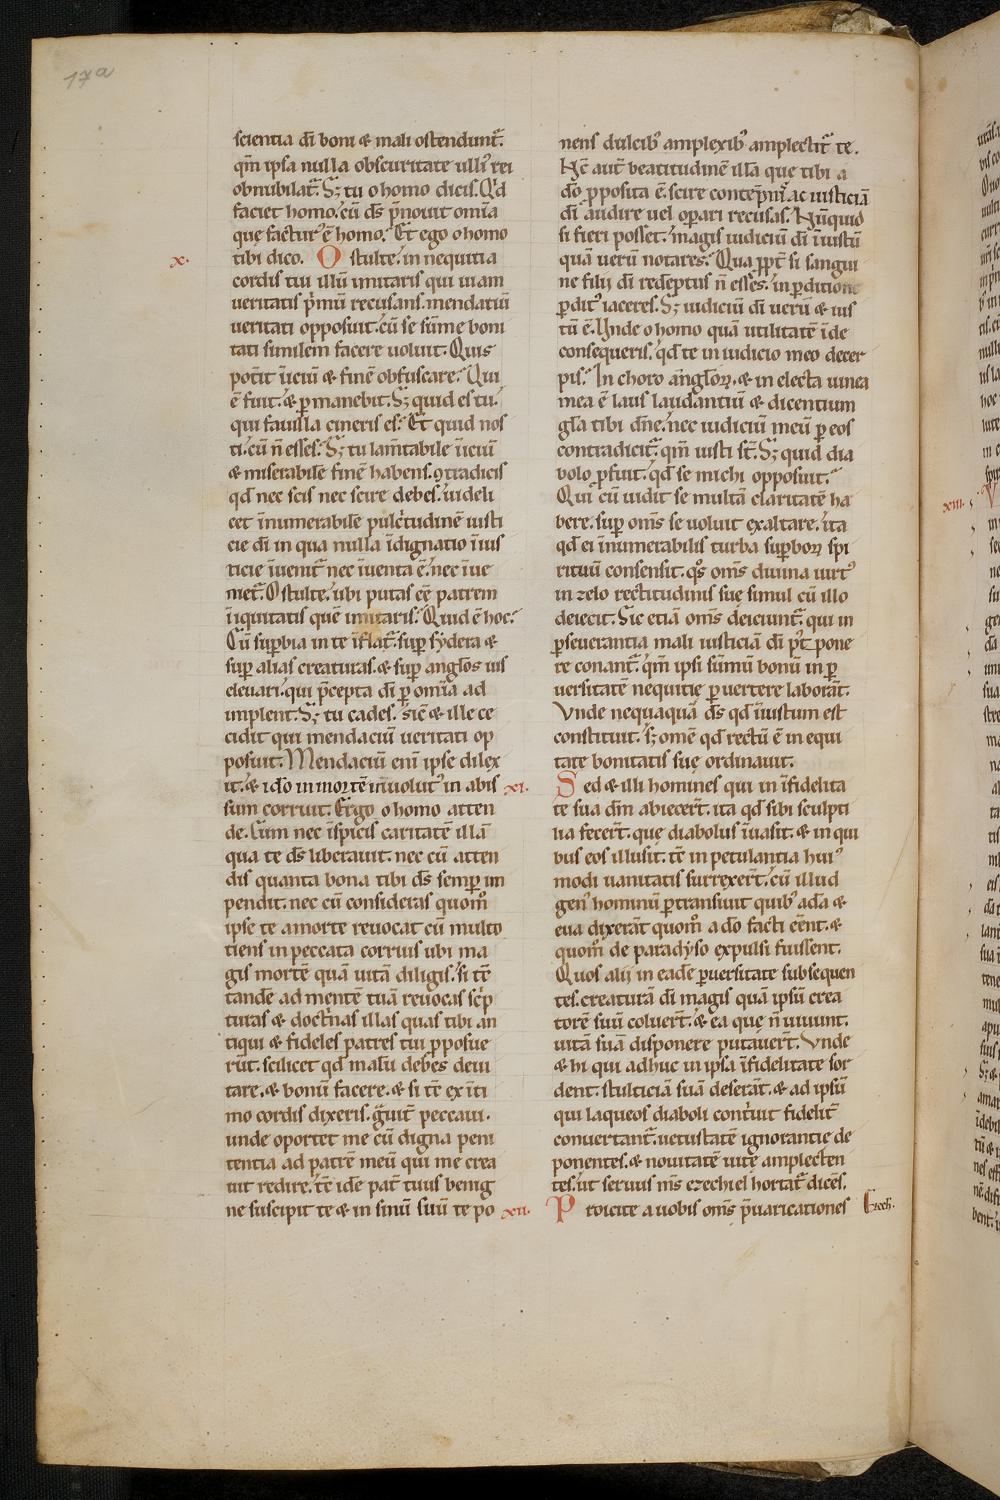 17a
scientia dī boni & mali ostendunt̄.
qm̄ ipsa nulla obscuritate ulli᾽ rei
obnubilat̄. S; tu o homo dicis. Q'd
faciet homo. cū ds p̄nouit om̄ia
que factur᾽ ē homo. Et ego o homo
x. tibi dico. O stulte. in nequitia
cordis tui illū imitaris qui uiam
ueritatis p̄mū recusans. mendatiū
ueritati opposuit. cū se sūme boni
tati similem facere uoluit. Quis
potīt īiciū & finē obfuscare. Qui
ē fuit. & ꝑmanebit. S; quid es tu.
qui fauilla cineris es. Et quid nos
ti. cū n̄ esses. S; tu lam̄tabile īiciū
& miserabile finē habens. ꝯtradicis
qd̄ nec scis nec scire debes. uideli
cet īnumerabilē pulc̄tudinē iusti
cie dī in qua nulla īdignatio īius
ticie īuenit̄ nec īuenta ē. nec īue
niet̄. O stulte. ubi putas eē patrem
īiquitatis quē imitaris. Quid ē hoc.
Cū suꝑbia in te īflat̄. suꝑ sydera &
suꝑ alias creaturas. & suꝑ anglos uis
eleuari. qui p̄cepta dī ꝑ om̄ia ad
implent. S; tu cades. sic̄ & ille ce
cidit qui mendaciū ueritati op
posuit. Mendaciū eni ipse dilex
it. & ido in mortē inuolut᾽ in abis
sum corruit. Ergo o homo atten
de. Cum nec īspicis caritatē illā
qua te ds liberauit. nec cū atten
dis quanta bona tibi ds semꝑ im
pendit. nec cū consideras quom̄
ipse te a morte reuocat cū multo
tiens in peccata corruis ubi ma
gis mortē quā uitā diligis. si tē
tandē ad mentē tuā reuocas sc̄p
turas & doct̄nas illas quas tibi an
tiqui & fideles patres tui ꝓposue
rūt. scilicet qd̄ malū debes deui
tare. & bonū facere. & si tē ex īti
mo cordis dixeris. ḡuit̄ peccaui.
unde oportet me cū digna peni
tentia ad patrē meū qui me crea
uit redire. tē idē pat̄ tuus benig
ne suscipit te & in sinū suū te po
nens dulcib᾽ amplexib᾽ amplectit̄ te.
Nc̄ aut̄ beatitudinē illā que tibi a
do ꝓposita ē. scire contēpnis. ac iusticiā
dī audire uel oꝑari recusas. Nūquid
si fieri posset. magis iudiciū dī īiustū
quā uerū notares. Qua ppt̄ si sangui
ne filij dī redēptus n̄ esses. in ꝑditione
ꝑdit᾽ iaceres. S; iudiciū dī uerū & ius
tū ē. Unde o homo quā utilitatē īde
consequeris. qd̄ te in iudicio meo decer
pis. In choro angloꝝ. & in electa uinea
mea ē laus laudantiū & dicentium
gl̄a tibi dn̄e. nec iudiciū meū ꝑ eos
contradicit̄. qm̄ iusti st̄. S; quid dia
bolo ꝓfuit. qd̄ se michi opposuit.
Qui cū uidit se multā claritatē ha
bere. suꝑ oms se uoluit exaltare. ita
qd̄ ei īnumerabilis turba suꝑboꝝ spi
rituū consensit. q̄s oms diuina uirt᾽
in zelo rectitudinis sue simul cū illo
deiecit. Sic etiā oms deiciunt̄. qui in
ꝑseuerantia mali iusticiā dī p̄t pone
re conant̄. qm̄ ipsi sūmū bonū in ꝑ
uersitatē nequitie ꝑuertere laborāt.
Vnde nequaquā ds qd̄ īiustum est
constituit. s; omē qd̄ rectū ē in equi
tate bonitatis sue ordinauit.
xi. Sed & illi homines qui in īfidelita
te sua dm̄ abiecert̄. ita qd̄ sibi sculpti
lia fecert̄. que diabolus īuasit. & in qui
bus eos illusit. tē in petulantia hui᾽
modi uanitatis surrexert̄. cū illud
gen᾽ hominū ꝑtransiuit quib᾽ adā &
eua dixerāt quom̄ a do facti eēnt. &
quom̄ de paradyso expulsi fuissent.
Quos alij in eadē ꝑuersitate subsequen
tes. creaturā dī magis quā ipsū crea
torē suū coluert̄. & ea que n̄ uiuunt.
uitā suā disponere putauert̄. Vnde
& hi qui adhuc in ipsa īfidelitate sor
dent. stulticiā suā deserāt. & ad ipsū
qui laqueos diaboli cont̄uit fidelit̄
conuertant̄. uetustatē ignorantie de
ponentes. & nouitatē uite amplecten
tes. ut seruus ms ezechiel hortat̄ dicēs.
xii. Proicite a uobis oms p̄uaricationes Ezech.
xiii.